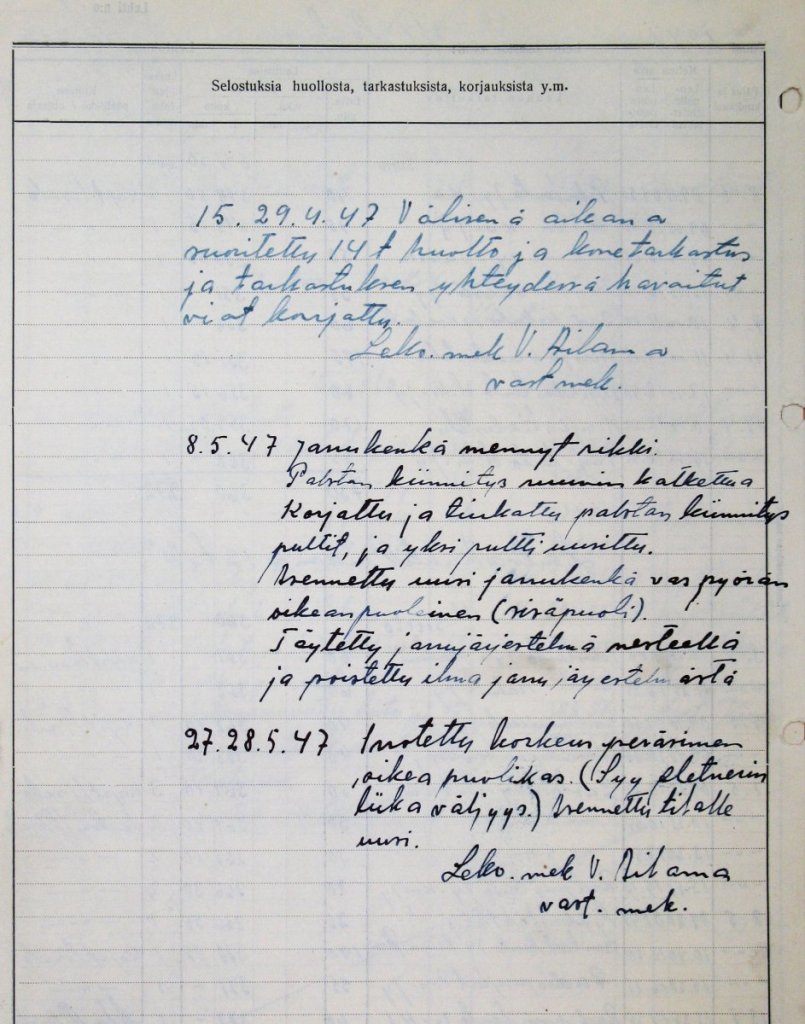 Selostuksia huollosta, tarkastuksista, korjauksista y.m.
15. 29.4.47 Välisenä aikana
suoritettu 14 t huolto ja konetarkastus
ja tarkastuksen yhteydessä havaitut
viat korjattu.
Leko. mek V.
vast mek.
8.5.47 jarrukenkä mennyt rikki.
Palstan kiinnitys ruuvin katkettua
Korjattu ja tiukattu palstan kiinnitys
pultit, ja yksi pultti uusittu.
Asennettu uusi jarrukenkä vas pyörän
oikeanpuoleinen (sisäpuoli).
Täytetty jarrujärjestelmä nesteellä
ja poistettu ilma jarrujärjestelmästä
27.28.5.47 Irroitettu korkeus peräsimen
oikea puolikas. (Syy pletnerin
liika väljyys.) Asennettu tilalle
uusi.
Leko. mek V.
vast. mek.